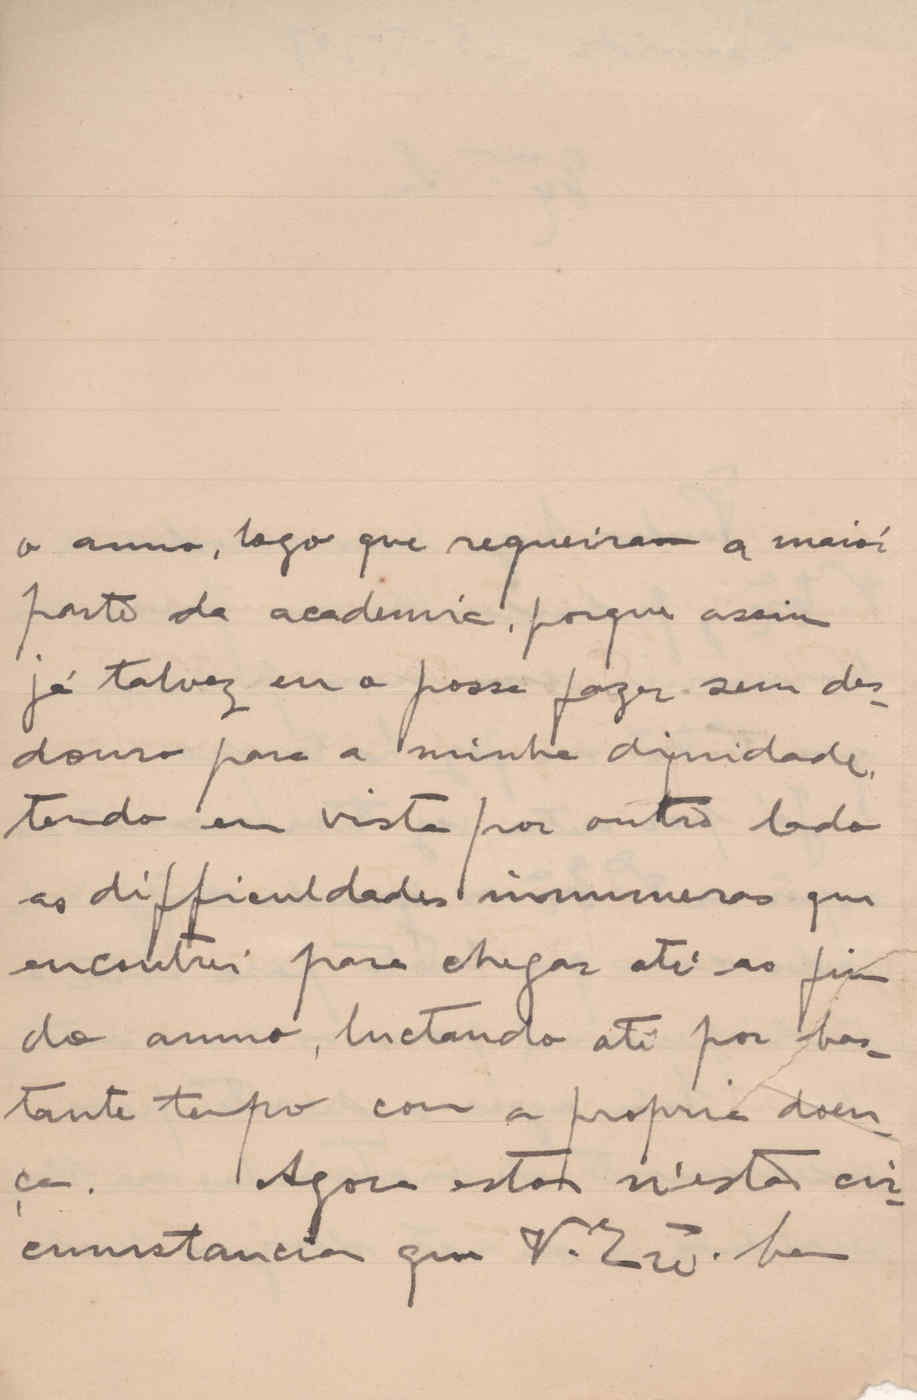 o anno, logo que requeiram a maior
parte da academia, porque assim
já talvez eu o possa fazer sem des-
douro para a minha dignidade,
tendo em vista por outro lado
as difficuldades innumeras que
encontrei para chegar até ao fim
do anno, luctando até por bas-
tante tempo com a propria doen-
ça. Agora estou n'esta cir-
cumstancia que V. Exª. bem